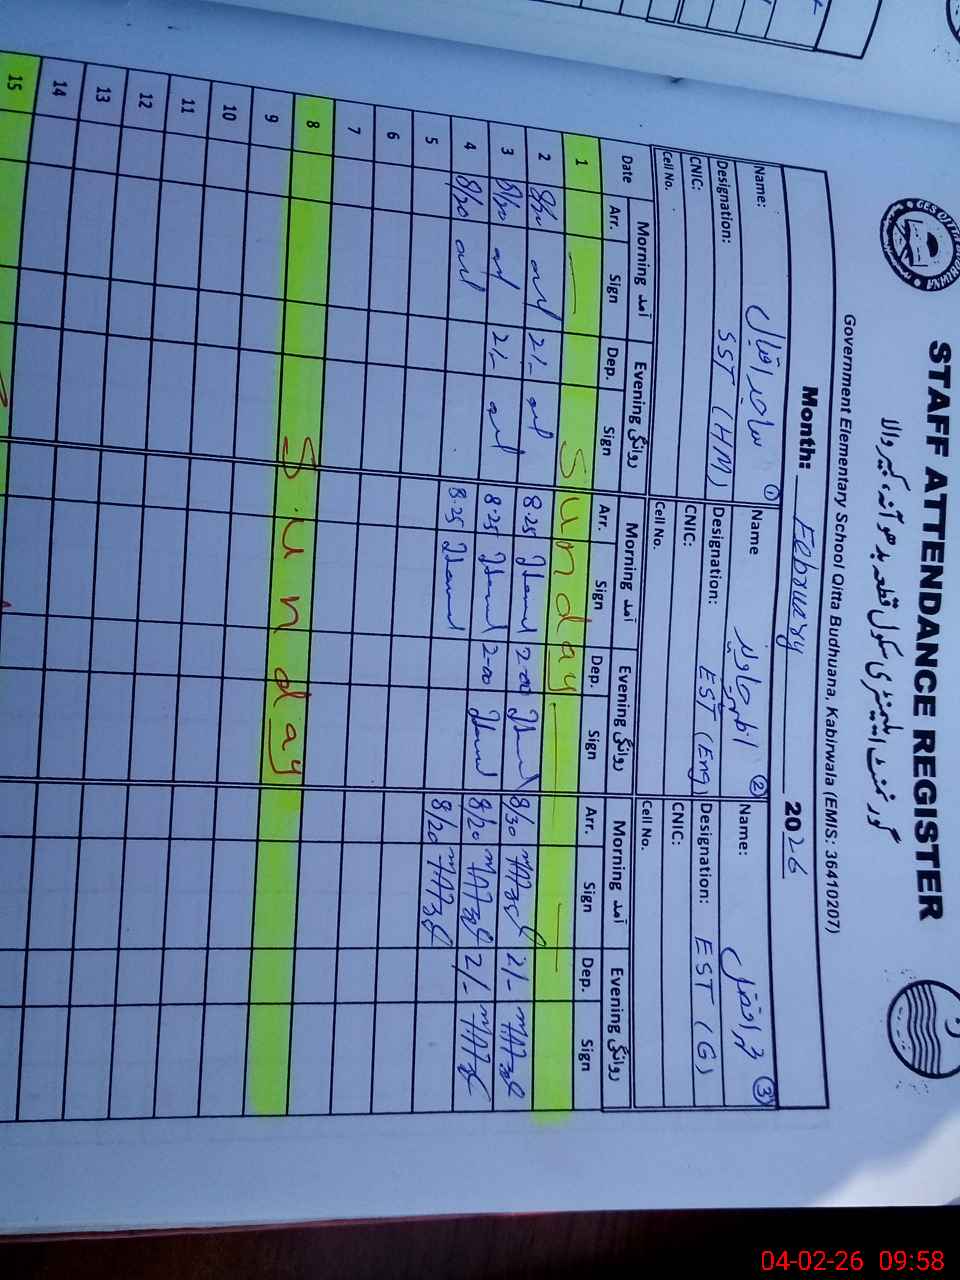 STAFF ATTENDANCE REGISTER
گورنمنٹ ایلیمنٹری سکول قطعہ بدھوآنہ، کبیروالا
Government Elementary School Qitta Budhuana, Kabirwala (EMIS: 36410207)
Month: February 2026
Name: ساجد اقبال ①
Name ②
Name: ③
Designation: SST (HM)
Designation: EST (Eng)
Designation: EST (G)
CNIC: CNIC: CNIC:
Cell No. Cell No. Cell No.
Date Morning آمد Evening روانگی Morning آمد Evening روانگی Morning آمد Evening روانگی
Arr. Sign Dep. Sign Arr. Sign Dep. Sign Arr. Sign Dep. Sign
1 Sunday
2 8/20 2/- 8.25 2-00 8/30 2/-
3 8/20 2/- 8.25 2-00 8/20 2/-
4 8/20 8.25 8/20
5
6
7
8 Sunday
9
10
11
12
13
14
15
04-02-26 09:58